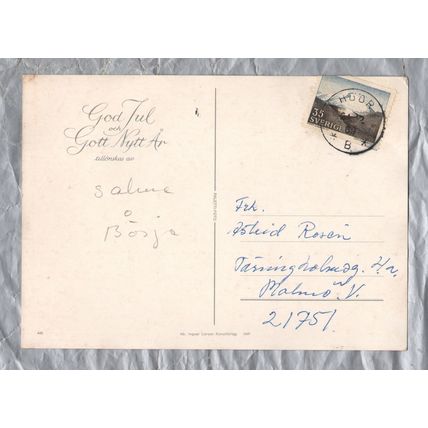 God Jul
och
Gott Nytt År
tillönskas av
Salme
o
Börje
HÖÖR
35
SVERIGE
B
Frk.
Astrid Rosén
Malmö V.
21751
PALETT-FOTO
445